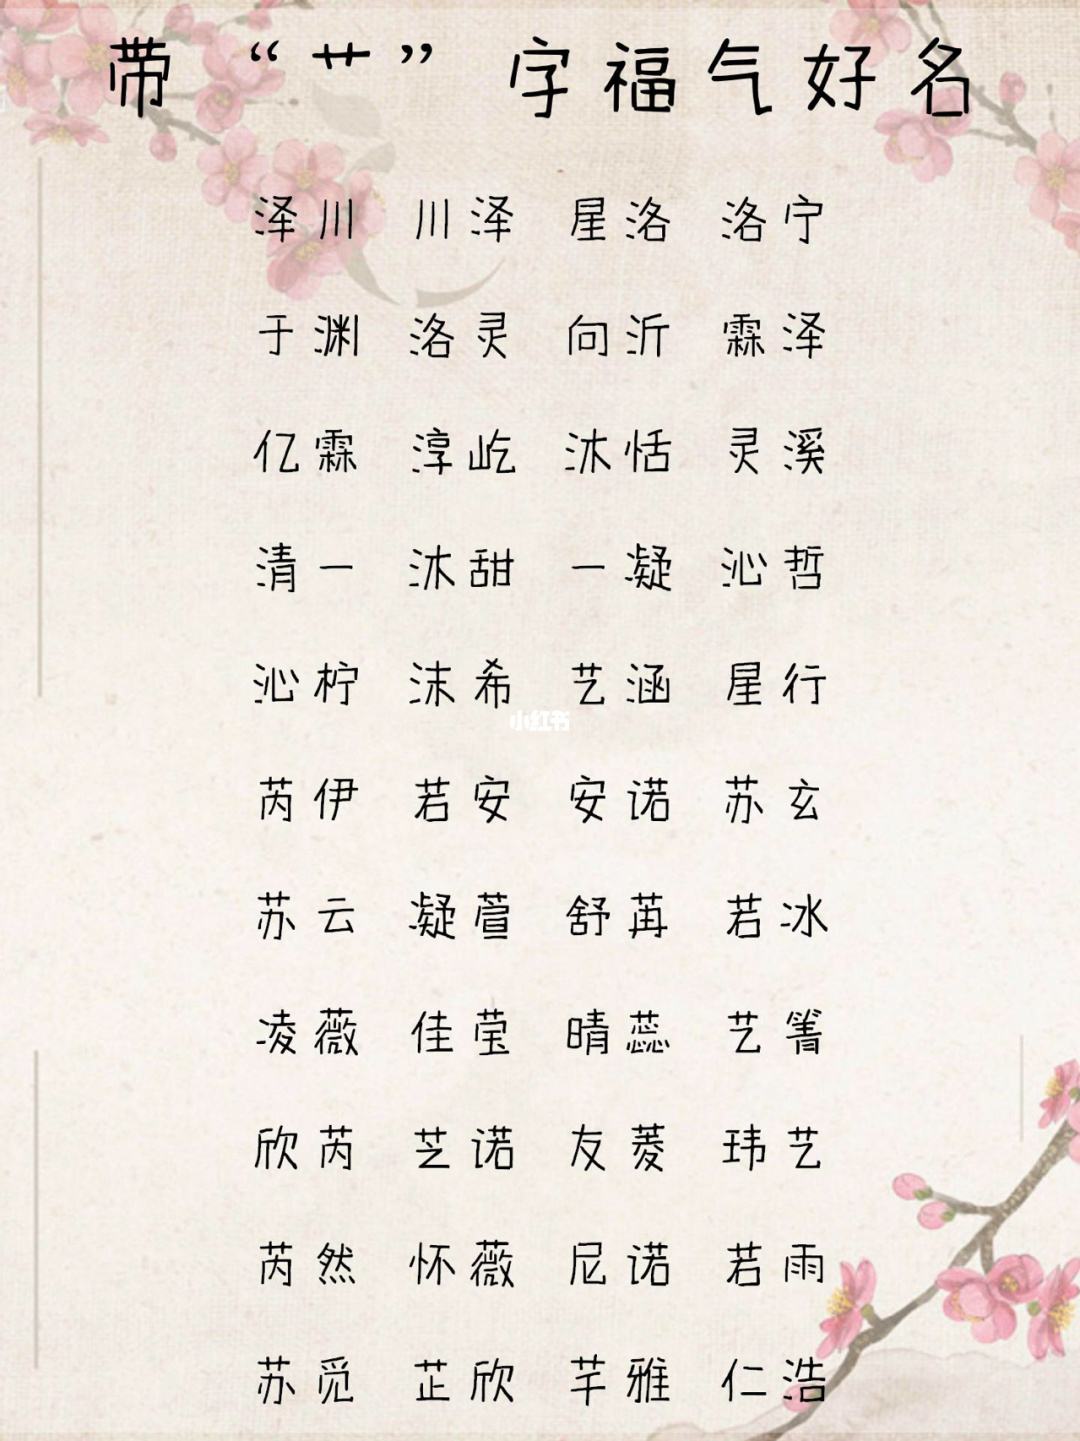 带“艹”字福气好名
泽川 川泽 星洛 洛宁
于渊 洛灵 向沂 霖泽
亿霖 淳屹 沐恬 灵溪
清一 沐甜 一凝 沁哲
沁柠 沫希 艺涵 星行
小红书
芮伊 若安 安诺 苏玄
苏云 凝萱 舒苒 若冰
凌薇 佳莹 晴蕊 艺箐
欣芮 芝诺 友菱 玮艺
芮然 怀薇 尼诺 若雨
苏觅 芷欣 芊雅 仁浩